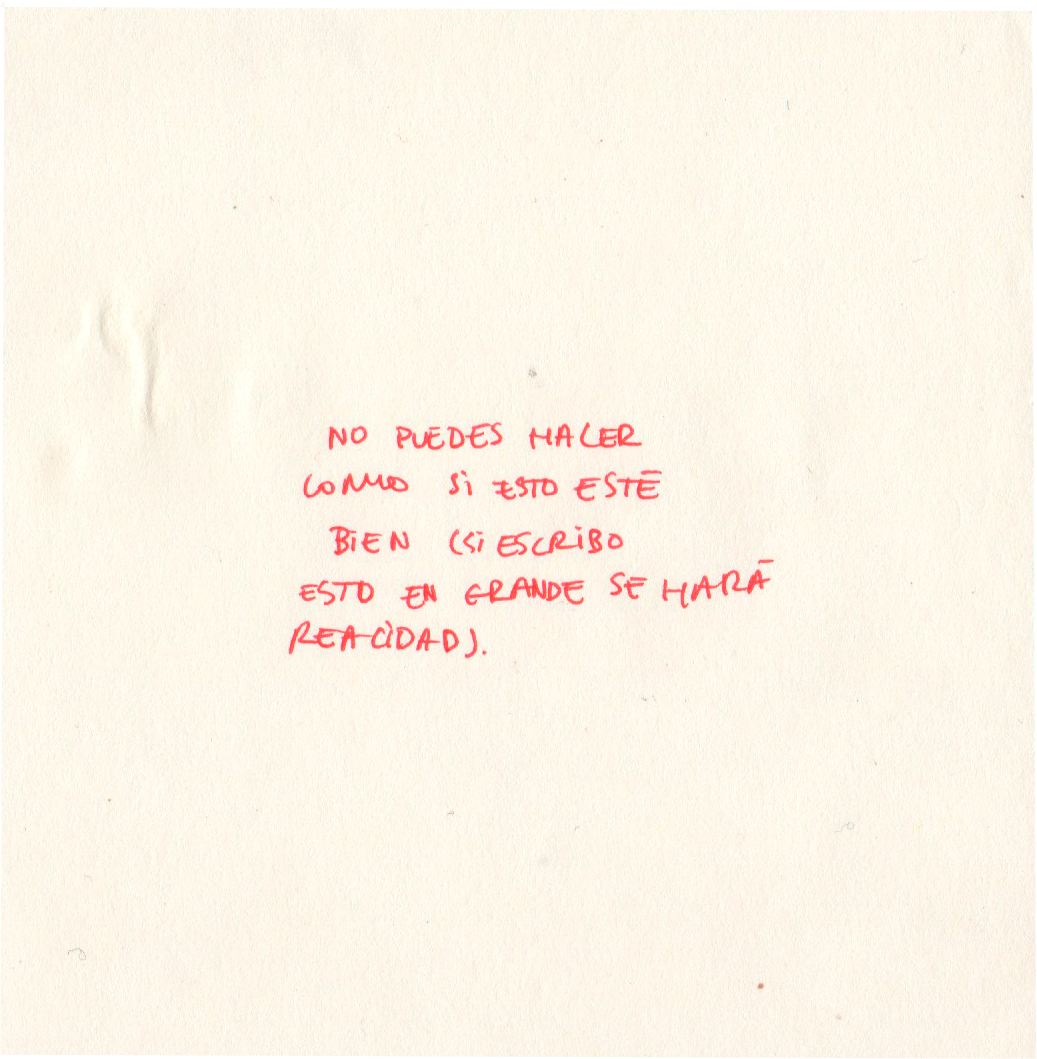 NO PUEDES HACER
COMO SI ESTO ESTÉ
BIEN (SI ESCRIBO
ESTO EN GRANDE SE HARÁ
REALIDAD).